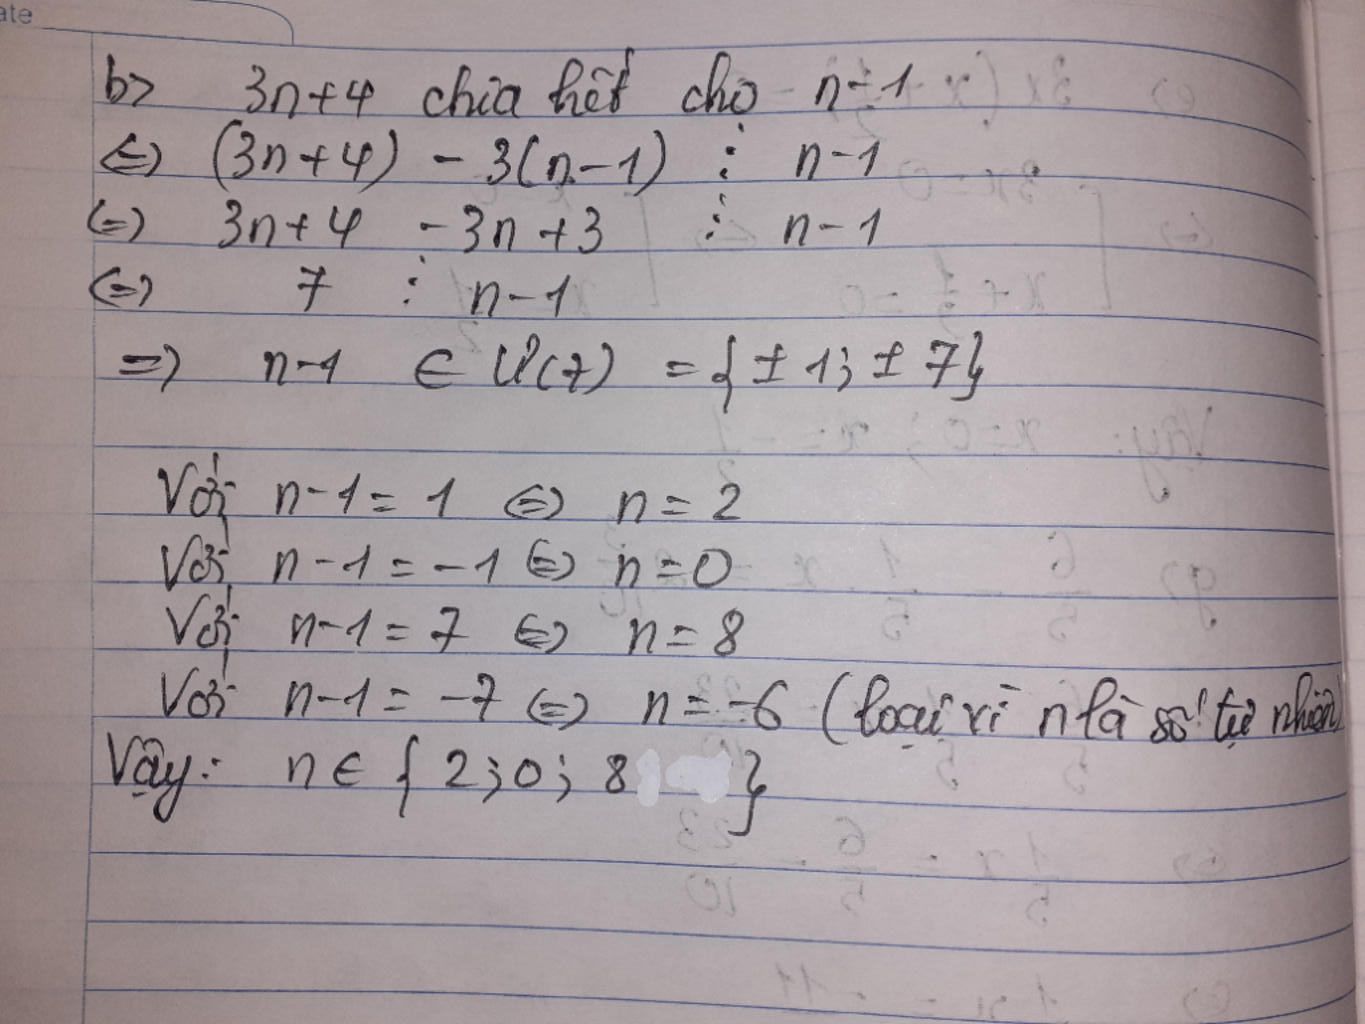 ate
b> 3n+4 chia hết cho n-1
<=> (3n+4) - 3(n-1) ⋮ n-1
<=> 3n+4 -3n+3 ⋮ n-1
<=> 7 ⋮ n-1
=> n-1 ∈ Ư(7) = {±1; ±7}
Với n-1=1 <=> n=2
Với n-1=-1 <=> n=0
Với n-1=7 <=> n=8
Với n-1=-7 <=> n=-6 (loại vì n là số tự nhiên)
Vậy: n∈ {2;0;8}